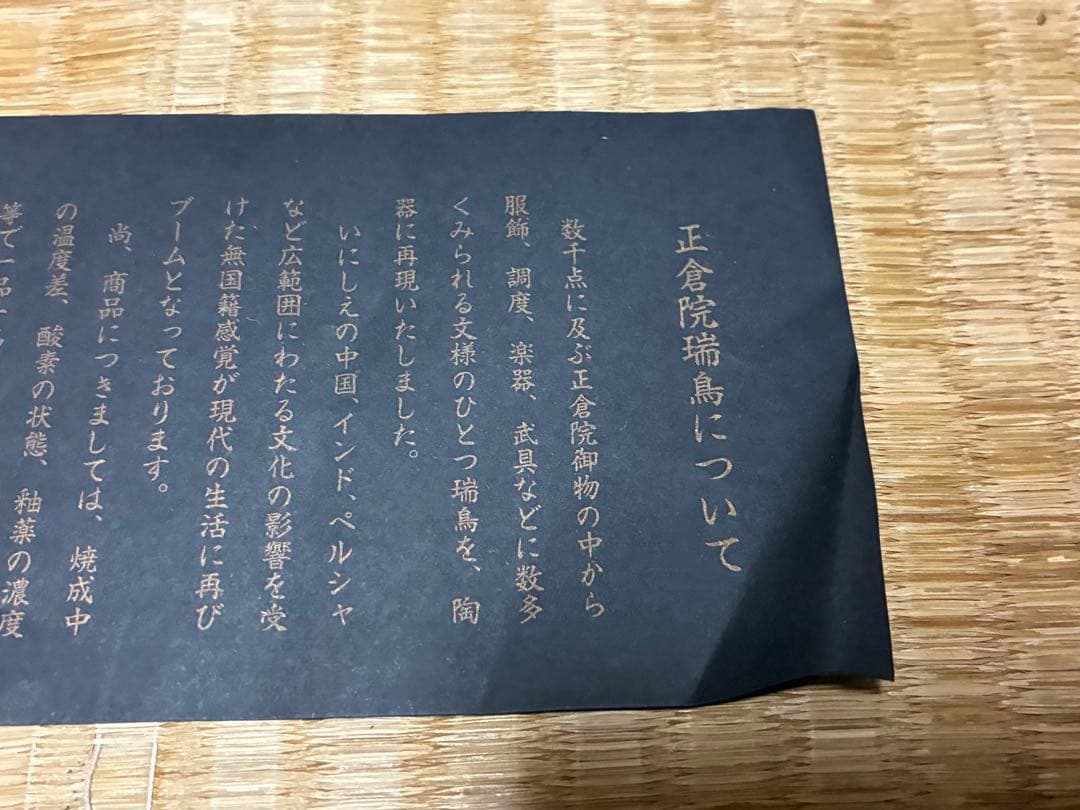 正倉院瑞鳥について
数千点に及ぶ正倉院御物の中から
服飾、調度、楽器、武具などに数多
くみられる文様のひとつ瑞鳥を、陶
器に再現いたしました。
いにしえの中国、インド、ペルシャ
など広範囲にわたる文化の影響を受
けた無国籍感覚が現代の生活に再び
ブームとなっております。
尚、商品につきましては、焼成中
の温度差、酸素の状態、釉薬の濃度